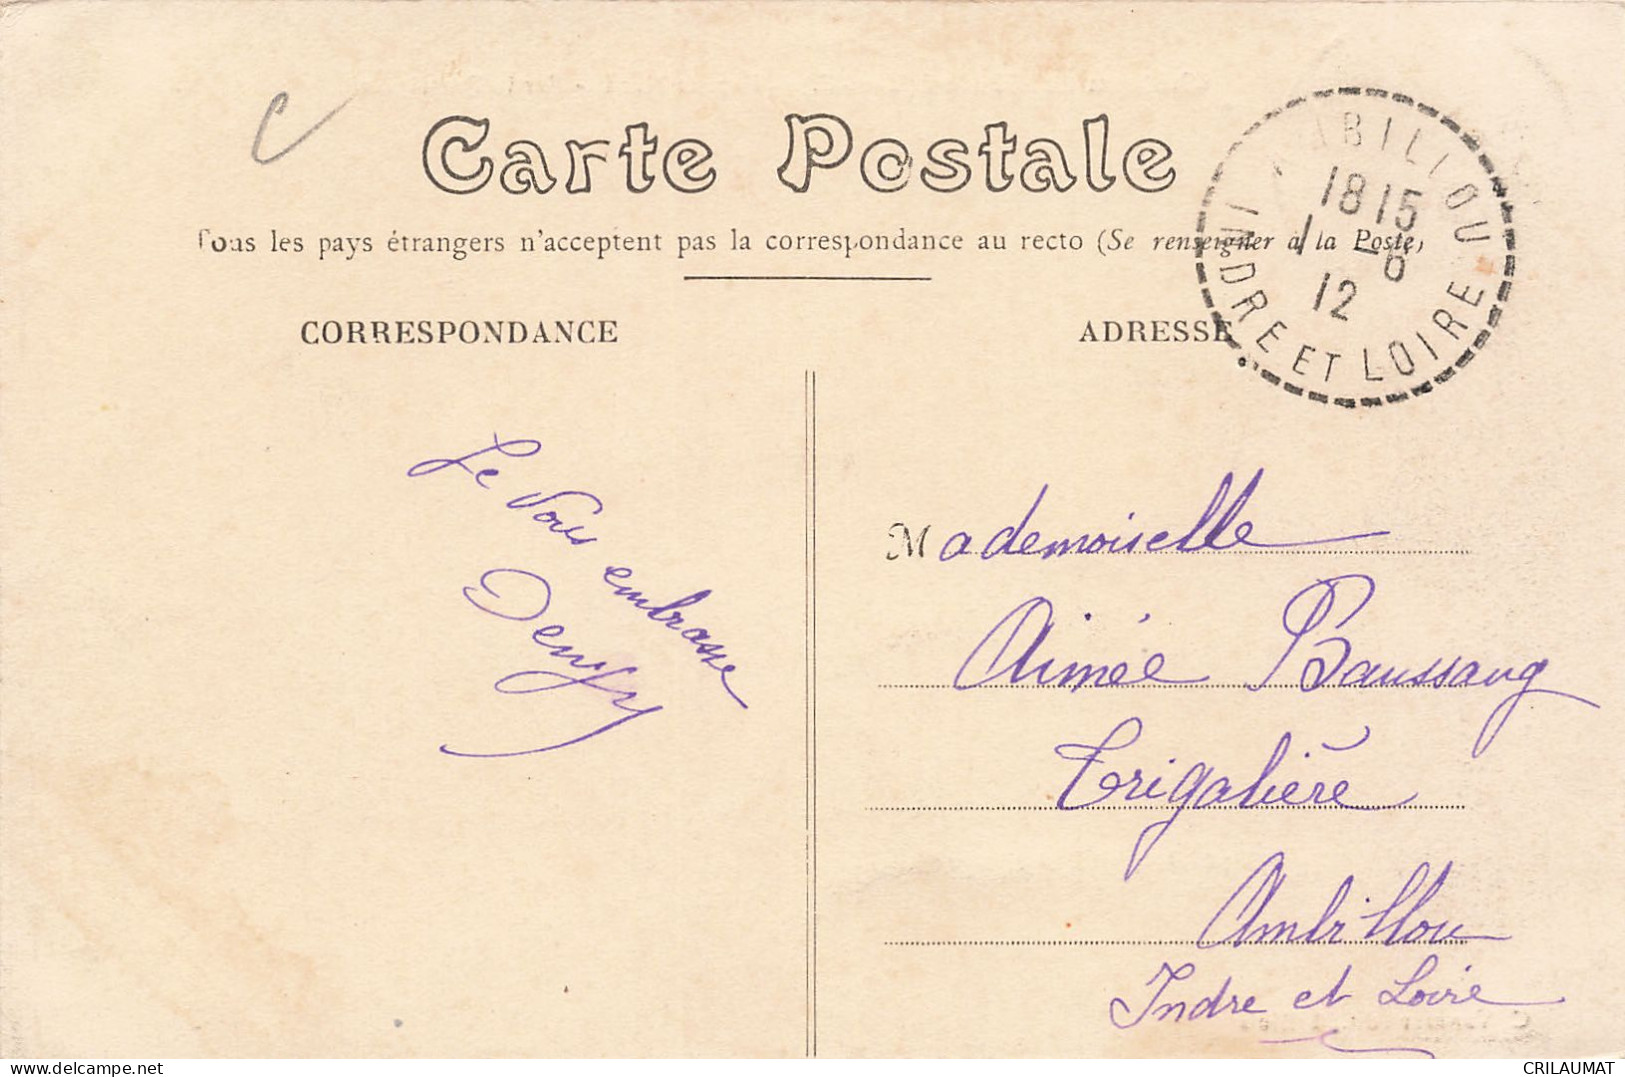 Carte Postale
Tous les pays étrangers n'acceptent pas la correspondance au recto (Se renseigner à la Poste)
CORRESPONDANCE
ADRESSE
ABILLOU
18 15
1 - 6
12
INDRE ET LOIRE
Je Vous embrasse
Mademoiselle
Aimée Baussang
Trigalière
Ambillou
Indre et Loire
delcampe.net
CRILAUMAT